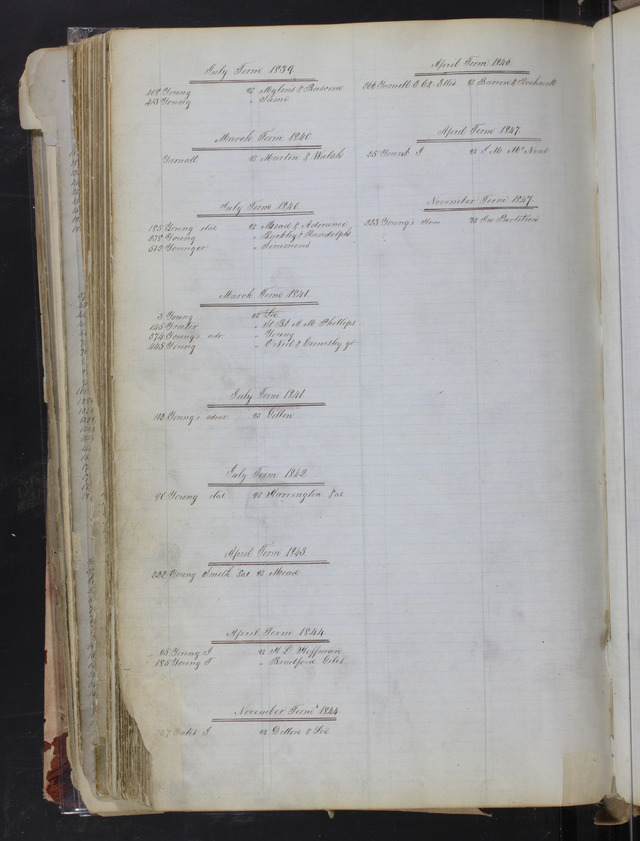 July Term 1839
408 Young vs Mylent & Bascom
413 Young " Same
March Term 1840
Yarnall vs Martin & Walsh
July Term 1840
185 Young etal vs Mead & Adriance
238 Young " Buckley & Randolph
512 Younger " Simmons
March Term 1841
5 Young vs
145 " St Bt A M Phillips
374 Young's adr. " Young
445 Young " O'Neil & Ormsby gr
July Term 1841
112 Young's admr vs Gillon
July Term 1842
90 Young etal vs Harrington &al
April Term 1843
222 Young Smith &al vs Mead
April Term 1844
65 Young J vs H L Hoffman
185 Young T " Bradford Giles
November Term 1844
Yates J. vs Dillon &
April Term 1846
266 Yarnell C Ex Ellis vs Barron &
April Term 1847
25 Young J vs S M McNeal
November Term 1847
223 Young's vs In Partition